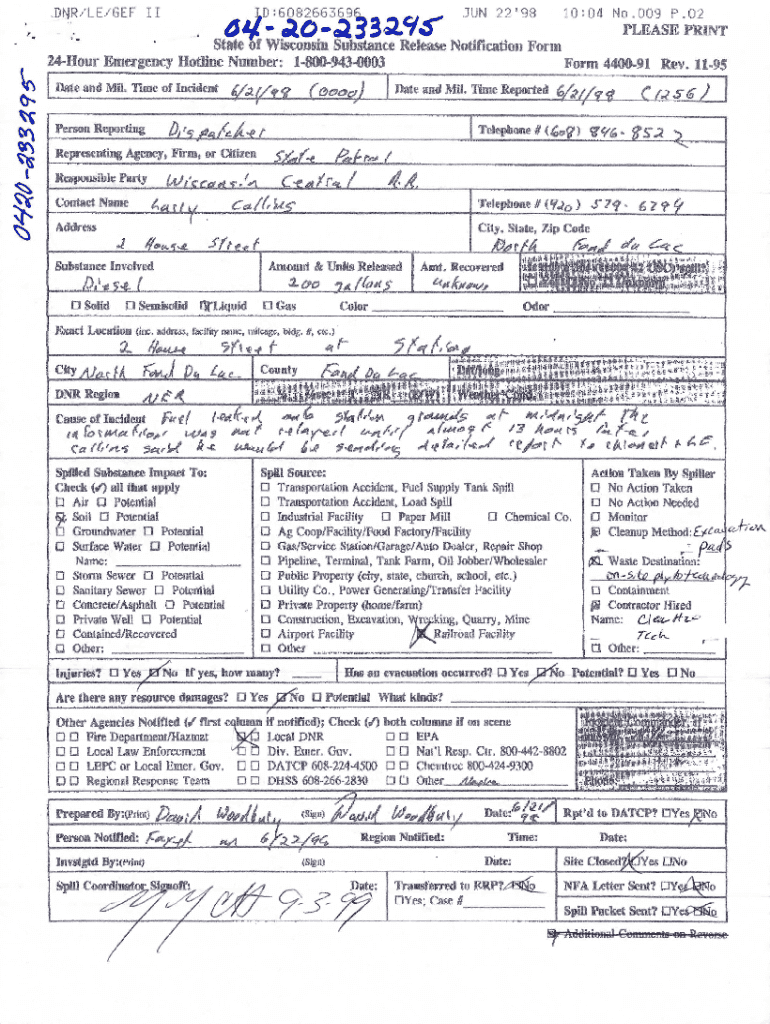 DNR/LE/GEF II ID:6082663696 JUN 22'98 10:04 No.009 P.02
04-20-233295
PLEASE PRINT
State of Wisconsin Substance Release Notification Form
24-Hour Emergency Hotline Number: 1-800-943-0003 Form 4400-91 Rev. 11-95
0420-233295
Date and Mil. Time of Incident 6/21/98 (0000) Date and Mil. Time Reported 6/21/98 (1256)
Person Reporting Dispatcher Telephone # (608) 846-8522
Representing Agency, Firm, or Citizen State Patrol
Responsible Party Wisconsin Central R.R.
Contact Name Larry Callins Telephone # (920) 579-6294
Address City, State, Zip Code
2 House Street North Fond du Lac
Substance Involved Amount & Units Released Amt. Recovered
Diesel 200 gallons unknown
☐ Solid ☐ Semisolid ☑ Liquid ☐ Gas Color Odor
Exact Location (inc. address, facility name, mileage, bldg. #, etc.)
2 House Street at Station
City North Fond Du Lac County Fond Du Lac
DNR Region NER
Cause of Incident Fuel leaked onto station grounds at midnight The
information was not relayed until almost 13 hours later
callins said he would be sending detailed report to
Spilled Substance Impact To: Spill Source: Action Taken By Spiller
Check (✓) all that apply ☐ Transportation Accident, Fuel Supply Tank Spill ☐ No Action Taken
☐ Air ☐ Potential ☐ Transportation Accident, Load Spill ☐ No Action Needed
☑ Soil ☐ Potential ☐ Industrial Facility ☐ Paper Mill ☐ Chemical Co. ☐ Monitor
☐ Groundwater ☐ Potential ☐ Ag Coop/Facility/Food Factory/Facility ☒ Cleanup Method: Excavation
☐ Surface Water ☐ Potential ☐ Gas/Service Station/Garage/Auto Dealer, Repair Shop - pads
Name: ☐ Pipeline, Terminal, Tank Farm, Oil Jobber/Wholesaler ☒ Waste Destination:
☐ Storm Sewer ☐ Potential ☐ Public Property (city, state, church, school, etc.) on-site phytotechnology
☐ Sanitary Sewer ☐ Potential ☐ Utility Co., Power Generating/Transfer Facility ☐ Containment
☐ Concrete/Asphalt ☐ Potential ☐ Private Property (home/farm) ☒ Contractor Hired
☐ Private Well ☐ Potential ☐ Construction, Excavation, Wrecking, Quarry, Mine Name:
☐ Contained/Recovered ☐ Airport Facility ☒ Railroad Facility Tech
☐ Other: ☐ Other ☐ Other:
Injuries? ☐ Yes ☑ No If yes, how many? Has an evacuation occurred? ☐ Yes ☑ No Potential? ☐ Yes ☐ No
Are there any resource damages? ☐ Yes ☑ No ☐ Potential What kinds?
Other Agencies Notified (✓ first column if notified); Check (✓) both columns if on scene
☐ ☐ Fire Department/Hazmat ☒ ☐ Local DNR ☐ ☐ EPA
☐ ☐ Local Law Enforcement ☐ ☐ Div. Emer. Gov. ☐ ☐ Nat'l Resp. Ctr. 800-442-8802
☐ ☐ LEPC or Local Emer. Gov. ☐ ☐ DATCP 608-224-4500 ☐ ☐ Chemtrec 800-424-9300
☐ ☐ Regional Response Team ☐ ☐ DHSS 608-266-2830 ☐ ☐ Other Phone:
Prepared By:(Print) David Woodbury (Sign) David Woodbury Date: 6/21/98 Rpt'd to DATCP? ☐ Yes ☒ No
Person Notified: Faxed on 6/22/98 Region Notified: Time: Date:
Invstgtd By:(Print) (Sign) Date: Site Closed? ☒ Yes ☐ No
Spill Coordinator Signoff: Date: 9-3-99 Transferred to RRP? ☒ No NFA Letter Sent? ☐ Yes ☒ No
☐ Yes; Case # Spill Packet Sent? ☐ Yes ☒ No
Additional Comments on Reverse